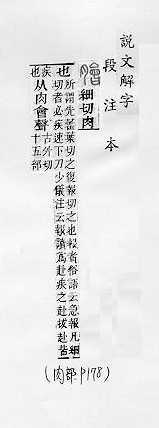 說文解字
段注本
膾 細切肉
也 所謂先藿葉切之復報切之也報者俗語云急報凡細
切者必疾速下刀少儀注云報讀爲赴疾之赴拔赴皆
疾
也 从肉會聲 古外切
十五部
(肉部P178)